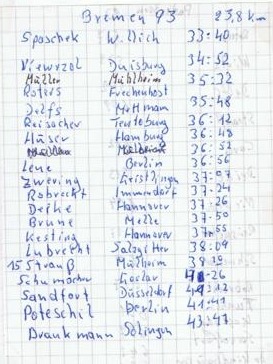 Bremen 93 23,8 km
Sposchek Willich 33:40
Duisburg 34:52
Müller Mühlheim 35:32
Roters Frechenhost
Delfs Mettmann 35:48
Reisacher Teuteburg 36:12
Häuser Hamburg 36:48
36:52
Lene Berlin 36:56
Zwering Geistlingen 37:07
Robrecht Immendorf 37:24
Deike Hannover 37:26
Brune Melle 37:50
Kesting Hannover 37:55
Lubrecht Salzgitter 38:09
15 Strauß Mülheim 39:10
Schumacher Goslar 26
Sandfort Düsseldorf
Poteschil Berlin 41:41
Braukmann Solingen 43:47